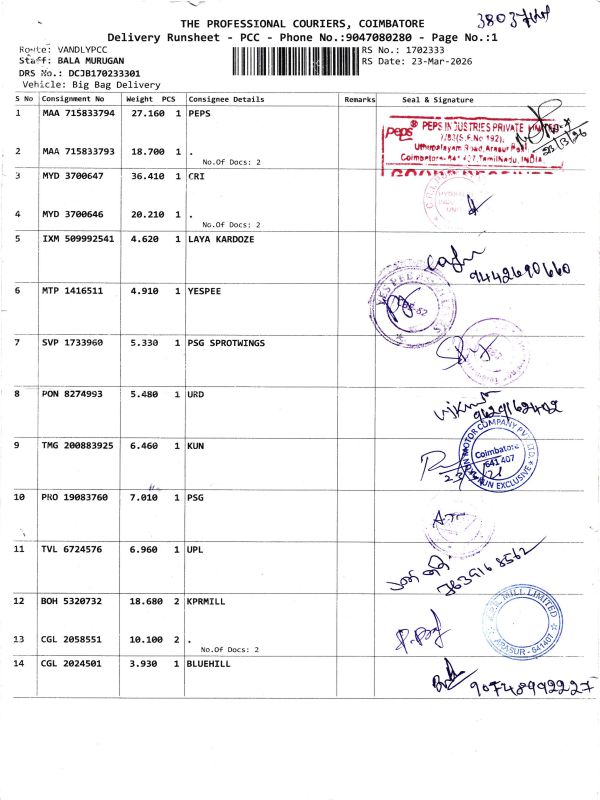 THE PROFESSIONAL COURIERS, COIMBATORE
Delivery Runsheet - PCC - Phone No.:9047080280 - Page No.:1
Route: VANDLYPCC
RS No.: 1702333
Staff: BALA MURUGAN
RS Date: 23-Mar-2026
DRS No.: DCJB170233301
Vehicle: Big Bag Delivery
S No Consignment No Weight PCS Consignee Details Remarks Seal & Signature
1 MAA 715833794 27.160 1 PEPS
peps® PEPS INDUSTRIES PRIVATE LIMITED
7/83(S.F.No 192),
Uthimpalayam Road, Arasur
Coimbatore-641 407, TamilNadu, INDIA
23/3/26
2 MAA 715833793 18.700 1 .
No.Of Docs: 2
3 MYD 3700647 36.410 1 CRI
4 MYD 3700646 20.210 1 .
No.Of Docs: 2
5 IXM 509992541 4.620 1 LAYA KARDOZE
9442690660
6 MTP 1416511 4.910 1 YESPEE
7 SVP 1733960 5.330 1 PSG SPROTWINGS
8 PON 8274993 5.480 1 URD
9629162402
9 TMG 200883925 6.460 1 KUN
MOTOR COMPANY PVT. LTD.
Coimbatore
641 407
KUN EXCLUSIVE
10 PRO 19083760 7.010 1 PSG
11 TVL 6724576 6.960 1 UPL
7639168562
12 BOH 5320732 18.680 2 KPRMILL
MILL LIMITED
ARASUR - 641407
13 CGL 2058551 10.100 2 .
No.Of Docs: 2
14 CGL 2024501 3.930 1 BLUEHILL
90748992227